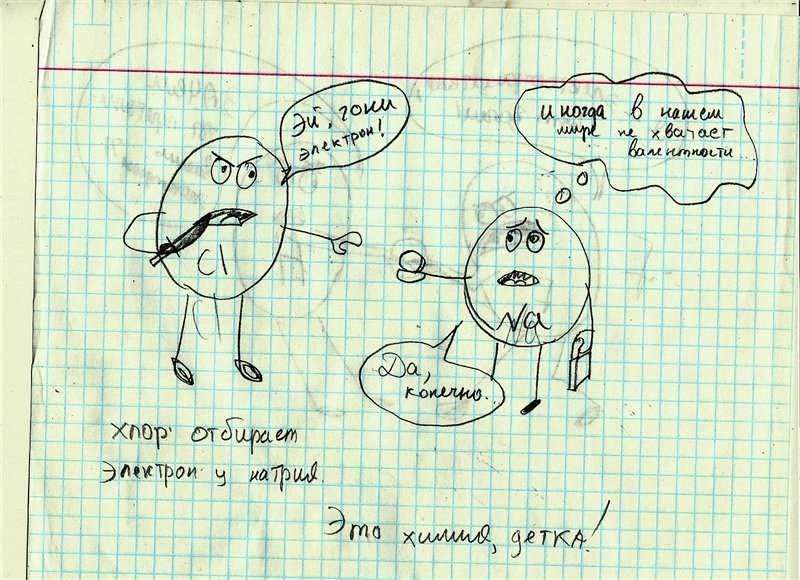 Эй, гони
электрон!
иногда в нашем
мире не хватает
валентности...
Cl
Cl
Na
Да,
конечно..
хлор отбирает
электрон у натрия.
Это химия, детка!